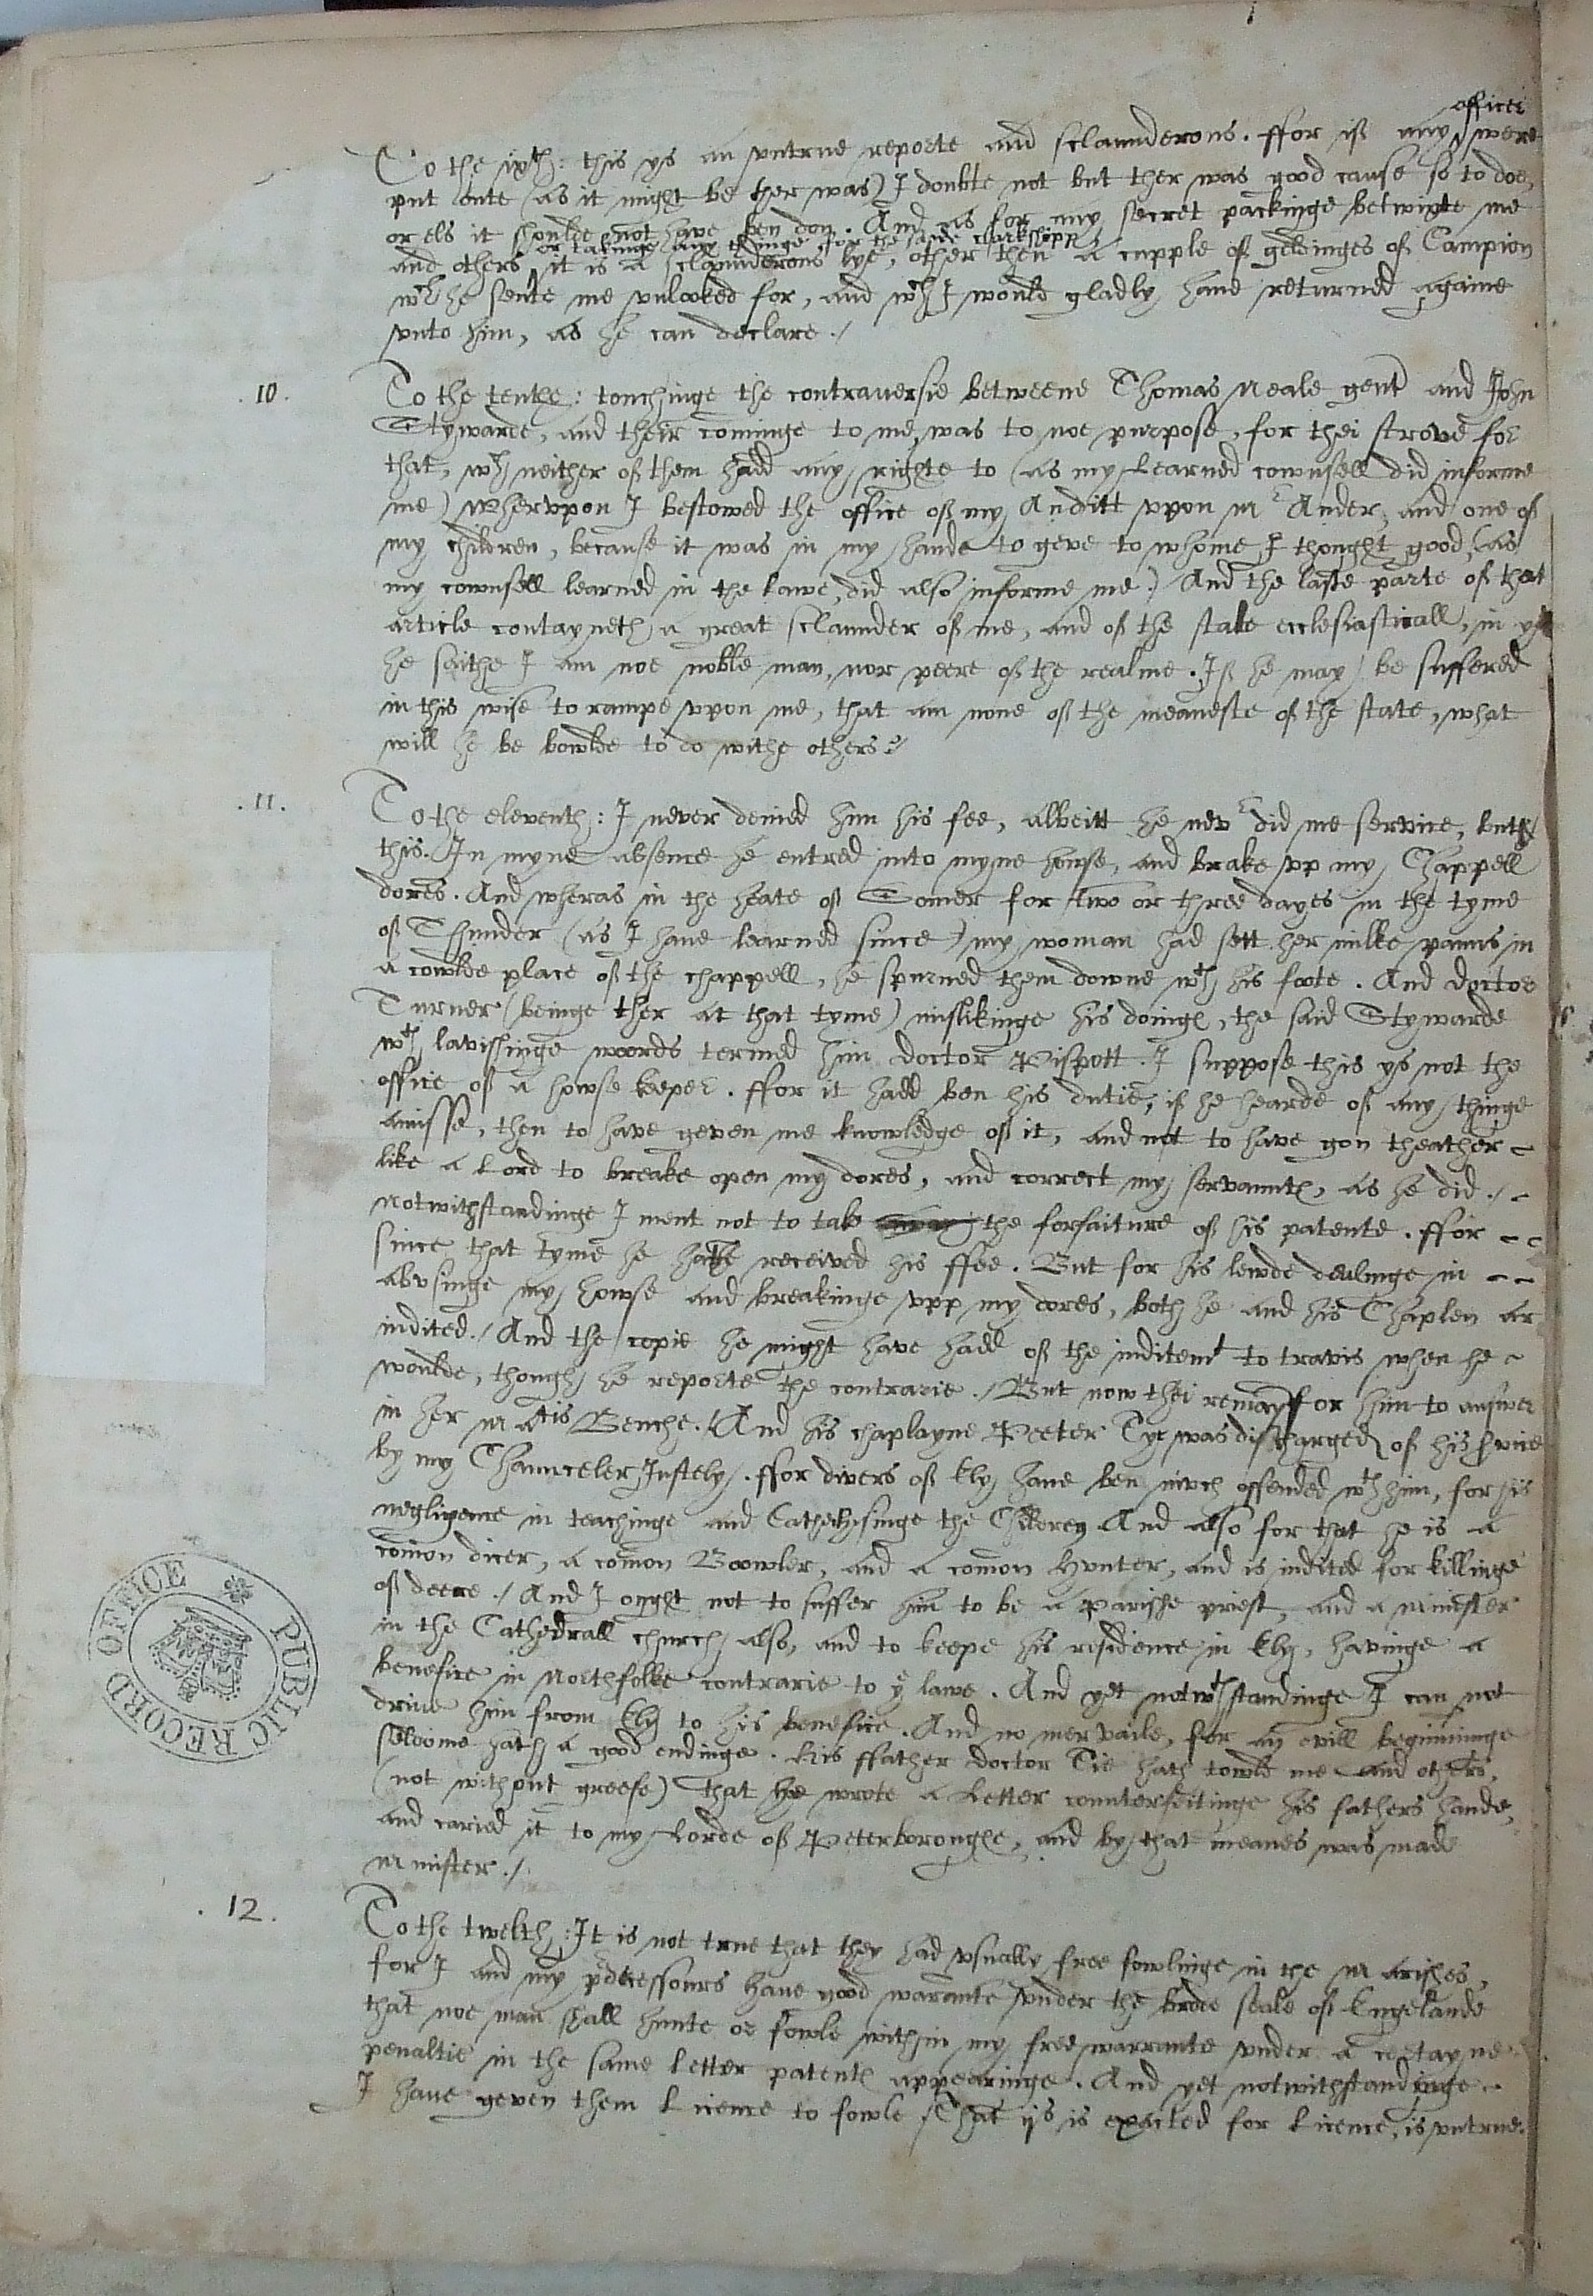 officer
To the ixth: this ys an vntrue reporte and sclaunderous. ffor if any were
put oute (as it might be ther was) I doubte not but ther was good cause so to doe,
or els it shoulde not have ben don. And as for any secret packinge betwixte me
or takinge any thynge for the same clarkshipp
and others it is a sclaunderous lye, other then a cupple of geldinges of Campion
wch he sente me vnlooked for, and wch I would gladly haue returned againe
vnto him, as he can declare./
.10.
To the tenthe: touchinge the contrauersie betweene Thomas Neale gent and John
Stywarde, and their cominge to me, was to noe purpose, for thei strove for
that, wch neither of them hadd any righte to (as my Learned cownsell did informe
me) Whervpon I bestowed the office of my Auditt vpon Mr Ander, and one of
my children, because it was in my hande to geve to whome I thought good, (as
my cownsell learned in the lawe, did also informe me:) And the laste parte of that
article contayneth a great sclaunder of me, and of the state ecclesiasticall, in yt
he saithe I am noe noble man, nor peere of the realme. If he may be suffered
in this wise to rampe vpon me, that am none of the meaneste of the state, what
will he be bowlde to do withe others?/
.11.
To the eleventh: I never denied him his fee, albeitt he nevr did me service, but
this. In myne absence he entred into myne howse, and brake vp my Chappell
dores. And wheras in the heate of Somer for two or three dayes in the tyme
of Thunder (as I haue learned since) my woman had sett her milke panns in
a cowlde place of the chappell, he spurned them downe wth his foote. And doctor
Turner (beinge ther at that tyme) mislikinge his doinges, the said Stywarde
wth lavishinge woords termed him doctor Pispott. I suppose this ys not the
office of a howse keper. ffor it hadd ben his dutie, if he hearde of any thinge
amisse, then to have geven me knowledge of it, and not to have gon theather -
like a Lord to breake open my dores, and correct my servauntes, as he did./ -
Notwithstandinge I ment not to take away the forfaiture of his patente. ffor - -
since that tyme he hathe received his ffee. But for his lewde dealinge in - -
abvsinge my howse and breakinge vpp my dores, both he and his Chaplen ar
indited./ And the copie he might have hadd of the inditemt to travis when he -
woulde, though he reporte the contrarie./ But now thei remayn for him to answer
in her Matis Benche./ And his chaplayne Peeter Tye was discharged of his service
by my Chaunceler Justely. ffor divers of Ely haue ben mvch offended wth him, for his
negligence in teachinge and Cathechysinge the Children And also for that he is a
comon dicer, a comon Boowler, and a comon Hvnter, and is indited for killinge
of deere./ And I ought not to suffer him to be a Parishe priest, and a minister
in the Cathedrall church also, and to keepe his residence in Ely, havinge a
benefice in Northfolke contrarie to ye lawe. And yet notwthstandinge I can not
drive him from Ely to his benefice. And no mervaile, for an evill beginninge
seldome hath a good endinge. His ffather doctor Tie hath towld me and others,
(not without greefe) that he wrote a Letter counterfeitinge his fathers hande,
and caried it to my Lorde of Peterboroughe, and by that meanes was made
Minister./
.12.
To the twelth: It is not true that they had vsually free fowlinge in the Marishes,
for I and my prdecessours haue good warante vnder the brode seale of Engelande
that noe man shall hunte or fowle within my free warrante vnder a certayne
penaltie in the same letter patentes appearinge. And yet notwithstandinge -
I haue geven them Licence to fowle / That ijs is exacted for Licence, is vntrue.
PUBLIC RECORD OFFICE